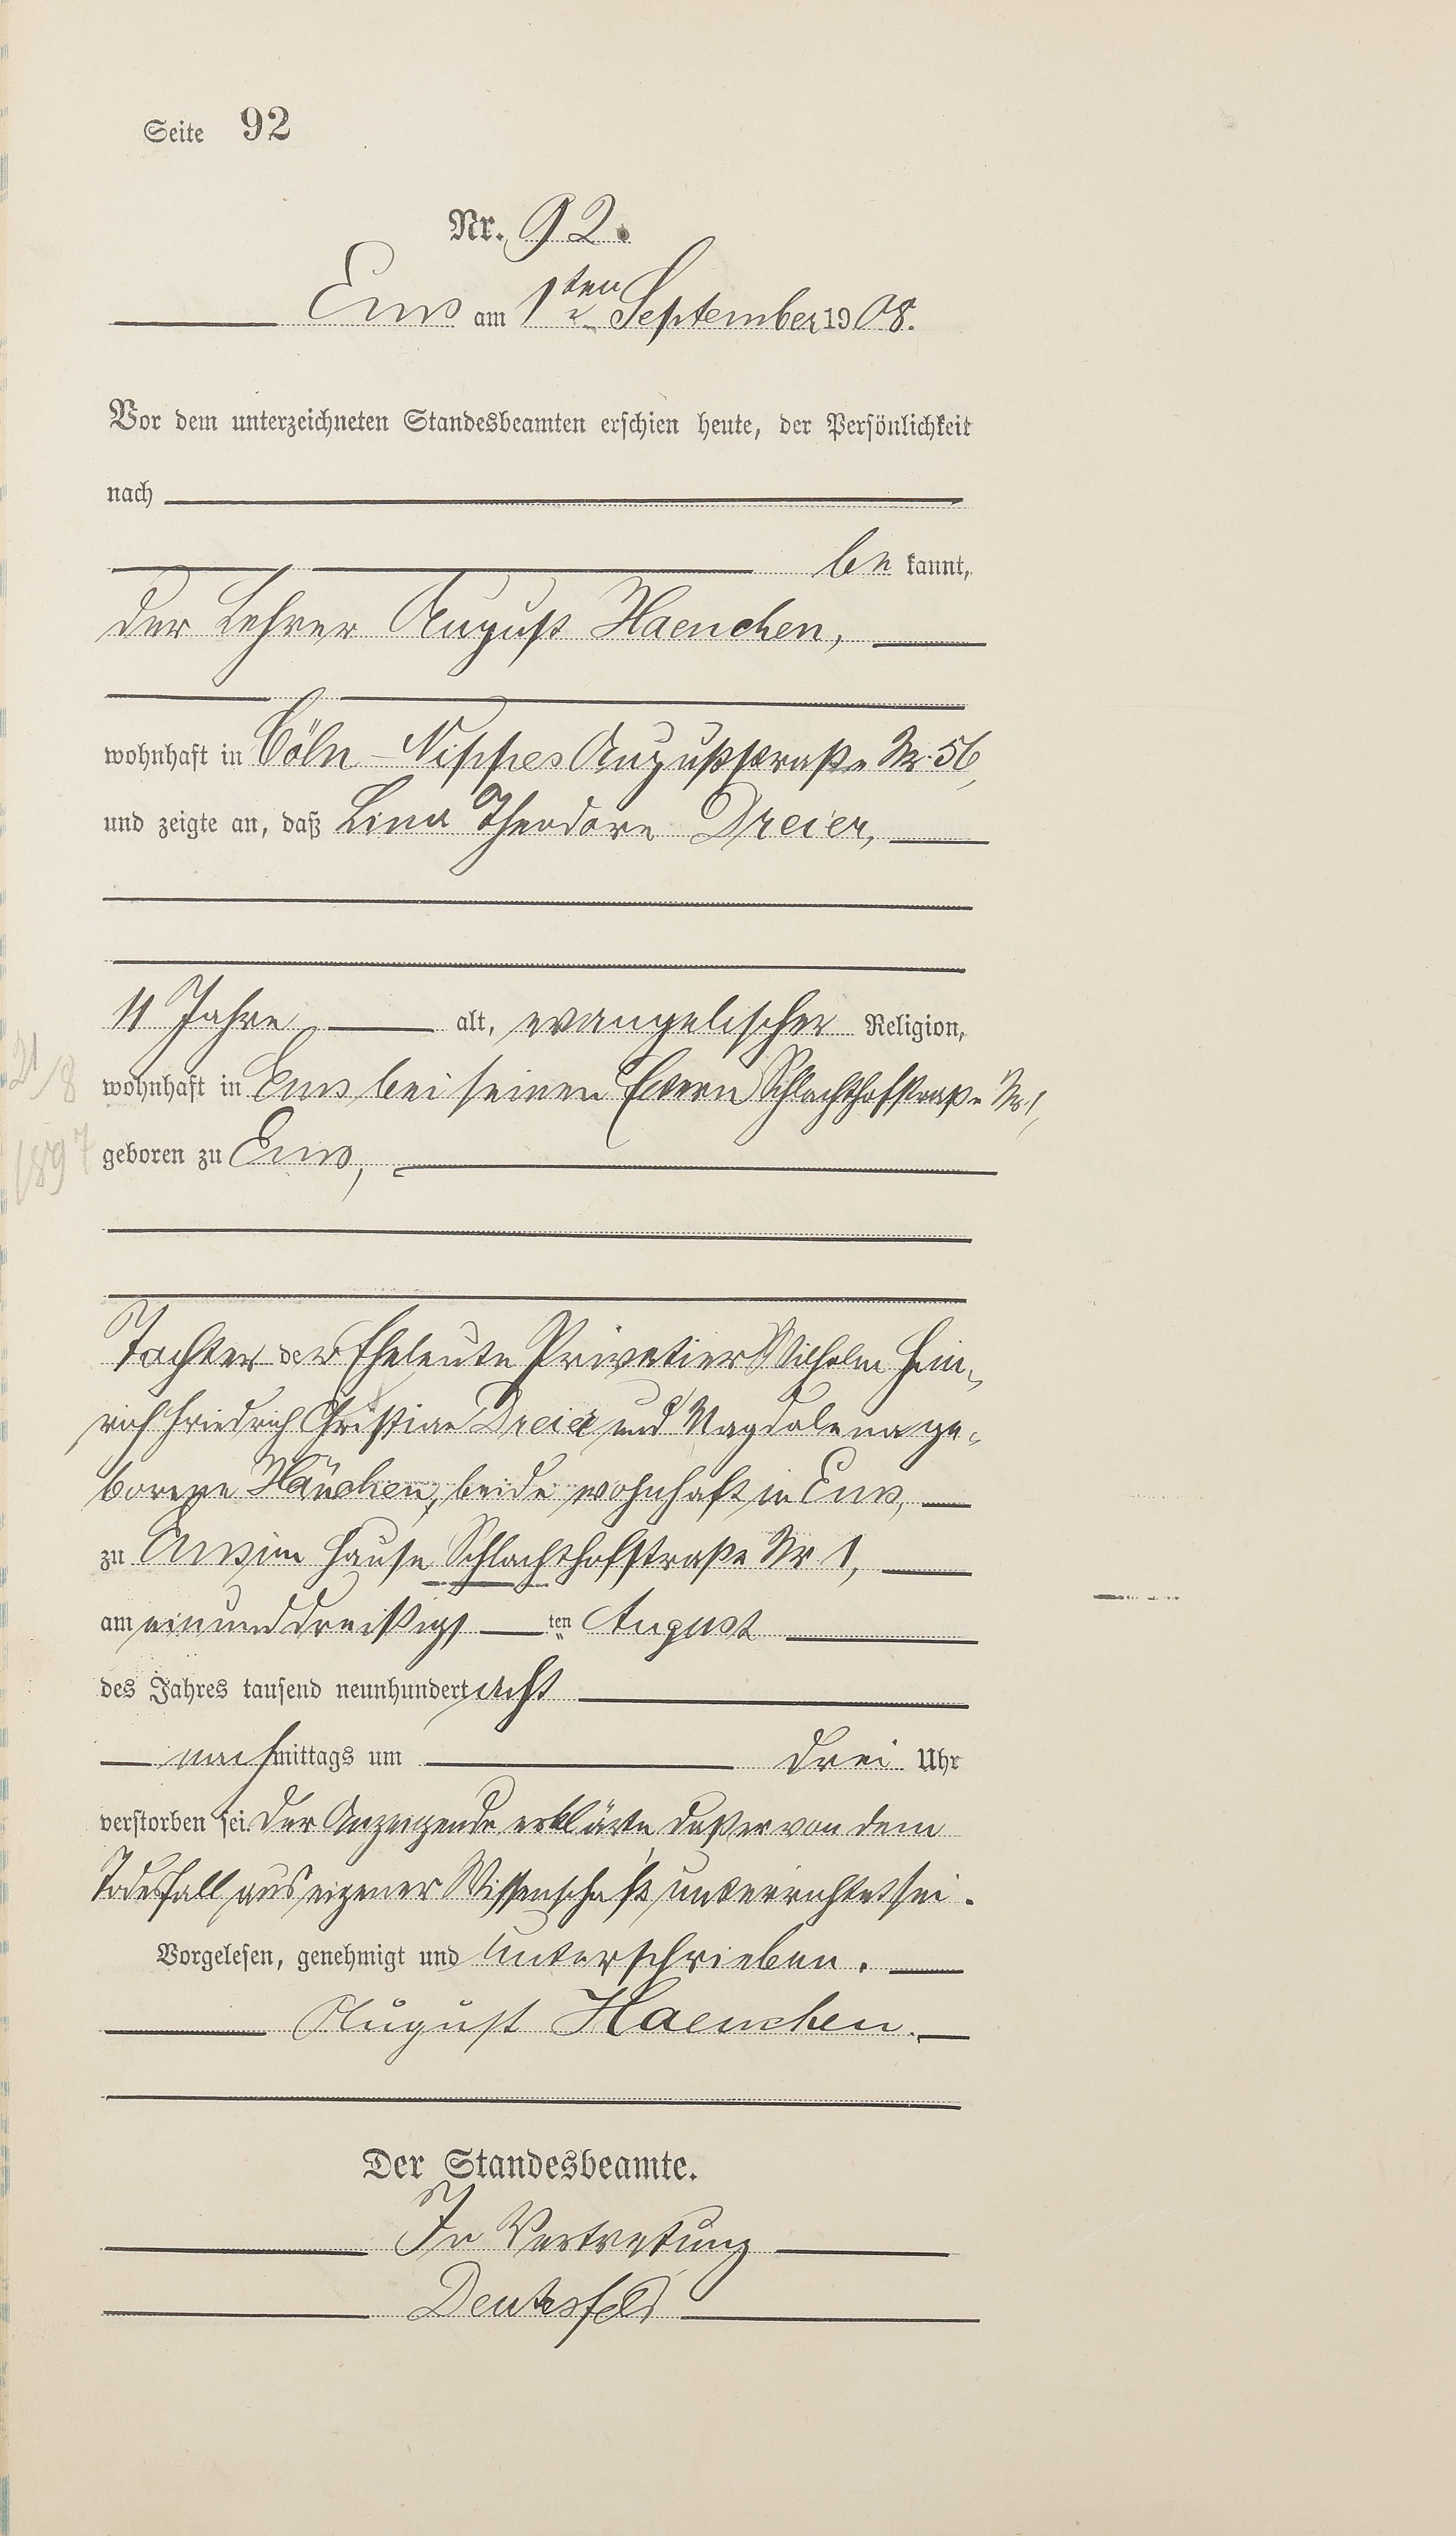 Seite 92
Nr. 92.
Ems am 1ten September 1908.
Vor dem unterzeichneten Standesbeamten erschien heute, der Persönlichkeit
nach
be kannt,
der Lehrer August Haenchen,
wohnhaft in Cöln-Nippes Auguststraße Nr. 56,
und zeigte an, daß Lina Theodore Dreier,
11 Jahre alt, evangelischer Religion,
21/8
wohnhaft in Ems bei seinen Eltern Schlachthofstraße Nr. 1,
1897
geboren zu Ems,
Tochter der Eheleute Privatier Wilhelm Hein-
rich Friedrich Christian Dreier und Magdalena ge-
borene Hänchen, beide wohnhaft in Ems,
zu Ems im Hause Schlachthofstraße Nr. 1,
am einunddreißigs ten August
des Jahres tausend neunhundert acht
nach mittags um drei Uhr
verstorben sei. Der Anzeigende erklärte daß er von dem
Todesfall aus eigener Wissenschaft unterrichtet sei.
Vorgelesen, genehmigt und unterschrieben.
August Haenchen.
Der Standesbeamte.
In Vertretung